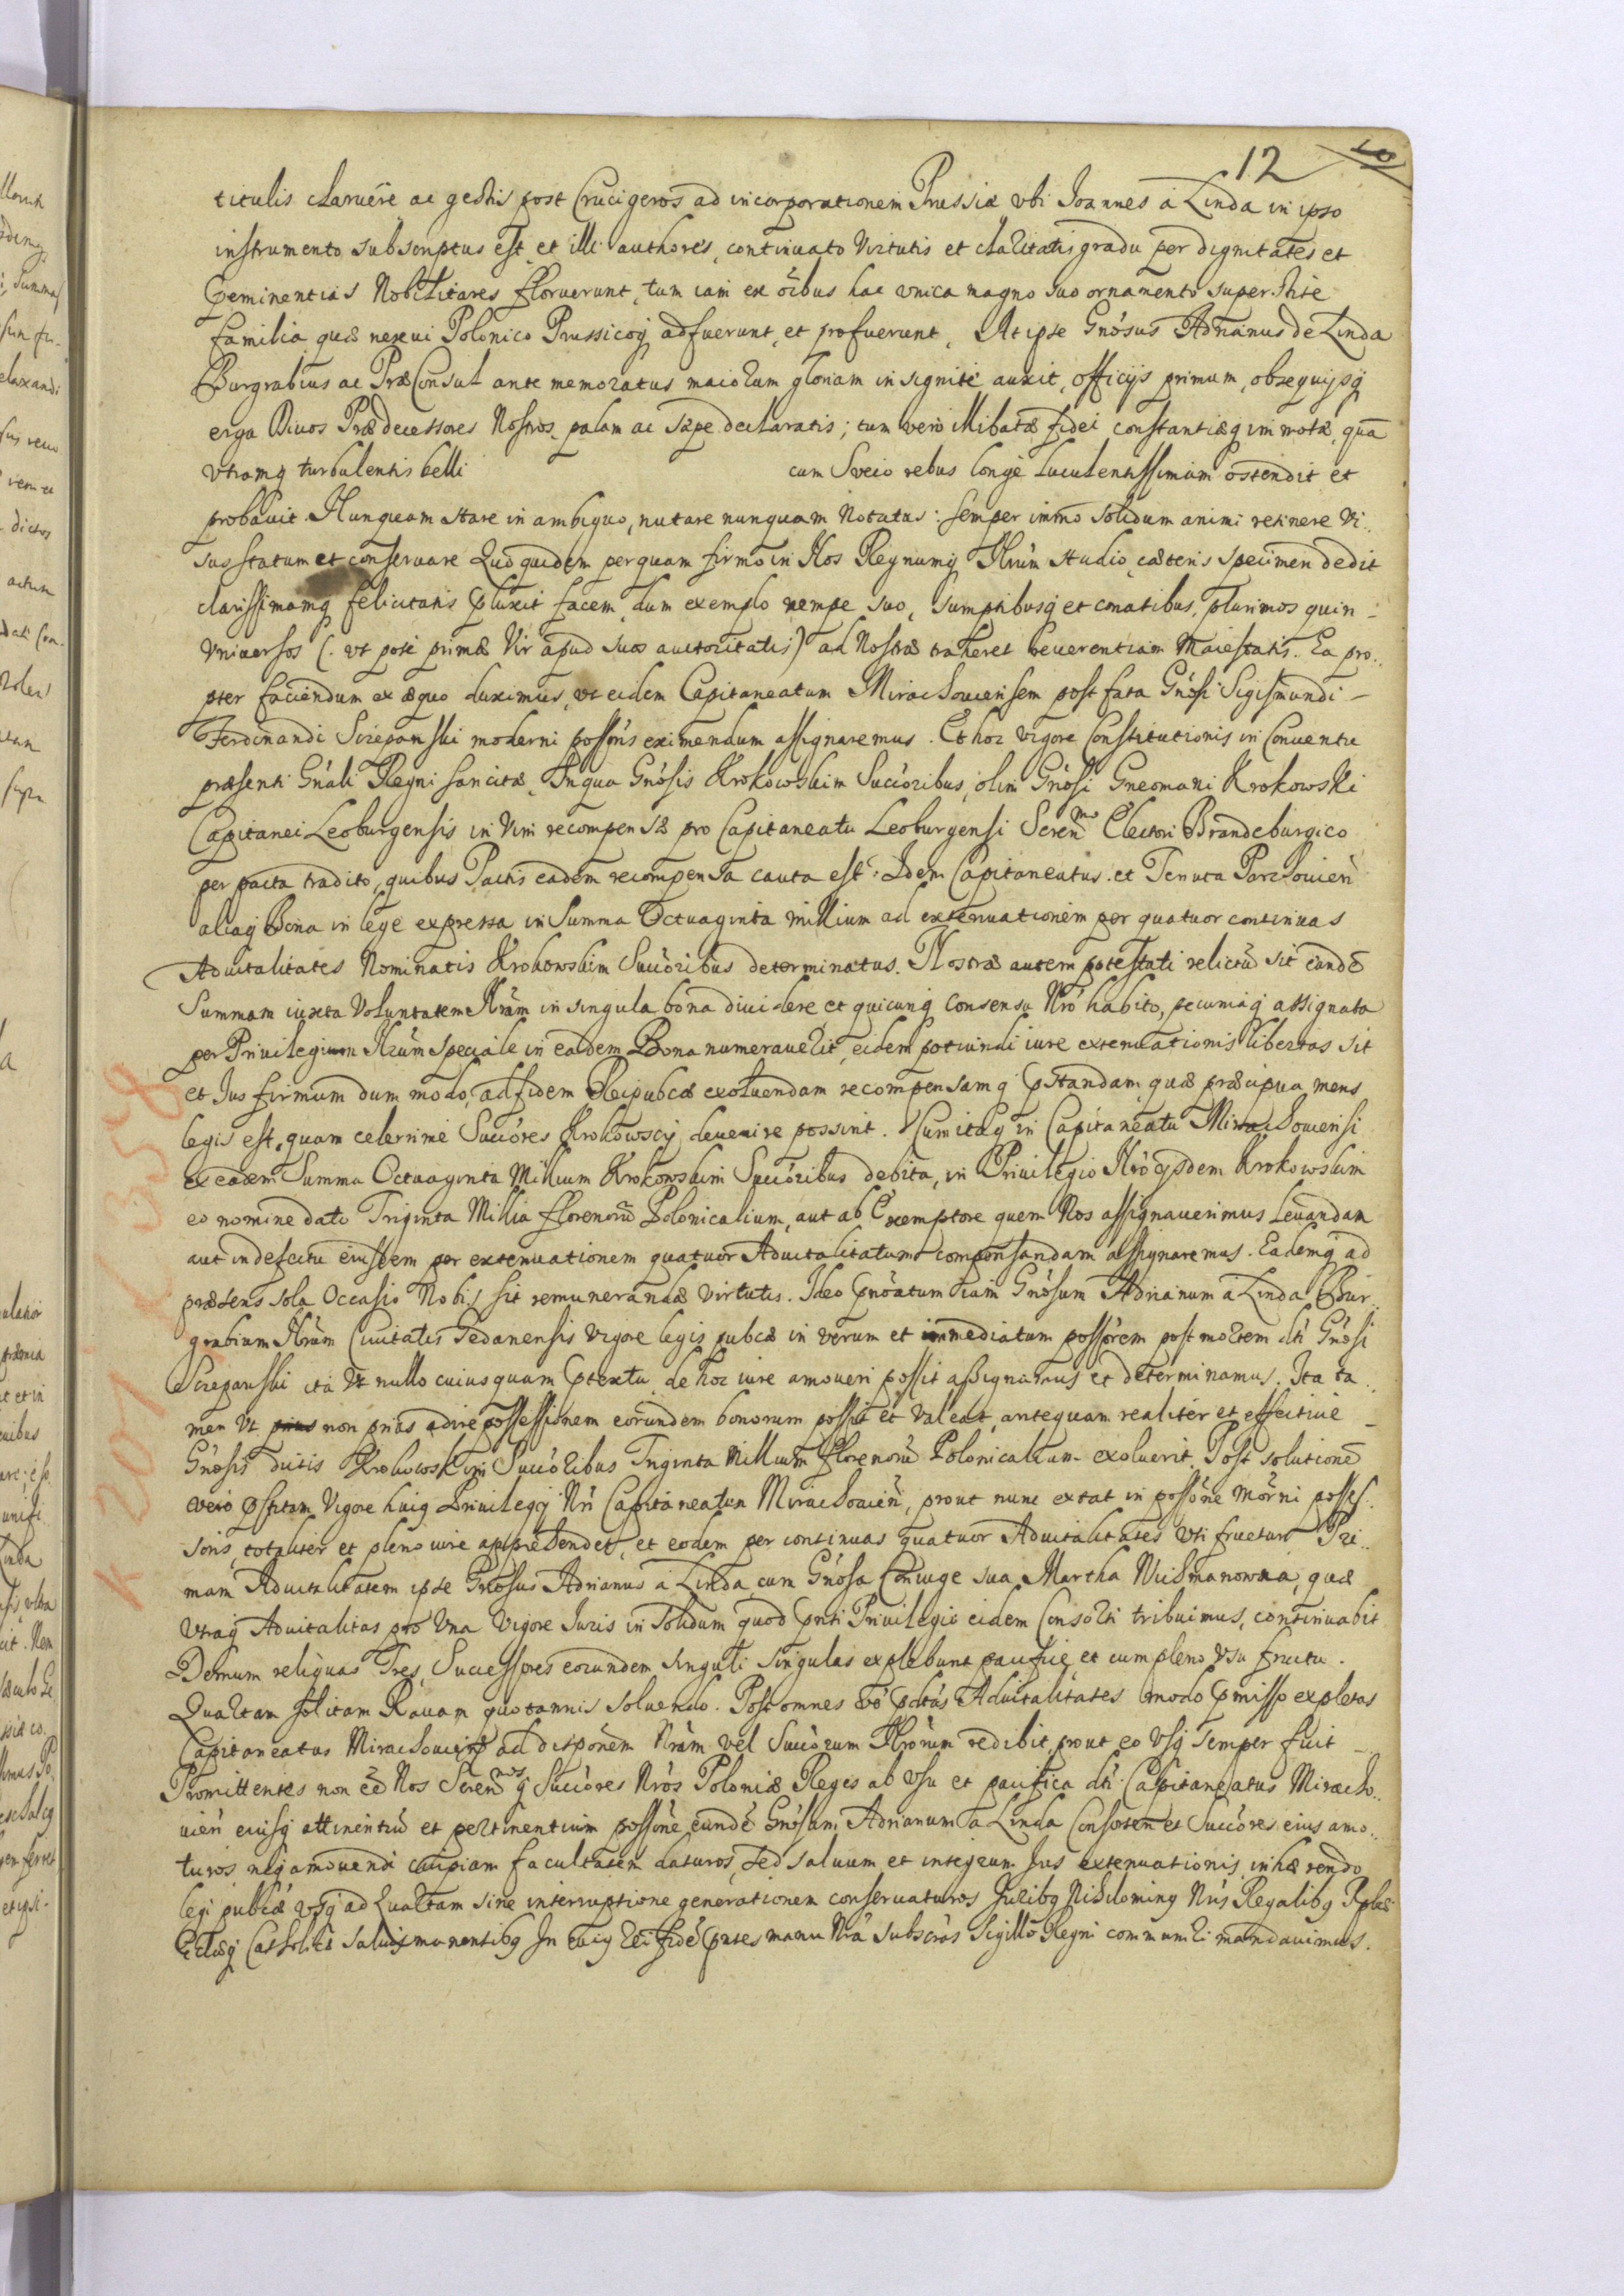 12
titulis claruêre ac gestis post Crucigeros ad incorporationem Prussiæ vbi Ioannes à Linda in ipso
instrumento subscriptus est, et illi authores, continuato Virtutis et claritatis gradu per dignitates et
Nobilitares floruerunt, tum iam ex oĩbus hac vnica magno suo ornamento superstite
familia quæ nexui Polonico Prussicoq adfuerunt, et profuerunt, At ipse Gnõsus Adrianus de Linda
Burgrabius ac PræConsul ante memoratus maiorum gloriam insignite auxit, officijs primum, obsequijsq
erga Diuos Prædecessores Nostros palam ac sæpe declaratis; tum verò illibatæ fidei constantiæq immotæ, quã
vtramq turbulentis belli cum Sveio rebus longè luculentissimam ostendit et
probauit. Nunquam stare in ambiguo, nutare nunquam Notatus: semper immo solidum animi retinere Vi..
sus statum et conseruare Quo quidem perquam firmo in Nos Regnumq Nrũm studio, cæteris specimen dedit
clarissimamq felicitatis facem, dum exemplo nempe suo, sumptibusq et conatibus, plurimos quin-
vniuersos (. vt pote primæ Vir apud suos auctoritatis) ad Nostræ traheret reuerentiam Maiestatis. Ea pro..
pter faciendum ex æquo duximus, vt eidem Capitaneatum Mirachouiensem post fata Gnõsi Sigismundi-
Ferdinandi Szczepanski moderni possõris eximendum assignaremus. Et hoc vigore Constitutionis in Conuentu
præsenti Gnãli Regni sancitæ, In qua Gnõsis Krokowskim Succõribus, olim Gnõsi Gneomari Krokowski
Capitanei Leoburgensis in Vim recompensæ pro Capitaneatu Leoburgensi Seren^mo Electori Brandeburgico
per pacta tradito, quibus Pactis eadem recompensa cauta est: Idem Capitaneatus et Tenuta Parchouien
aliaq Bona in lege expressa in Summa Octuaginta millium ad extenuationem per quatuor continuas
Aduitalitates Nominatis Krokowskim Succõribus determinatus. Nostræ autem potestati relictũ sit eandẽ
Summam iuxta Voluntatem Nrãm in singula bona diuidere et quicunq Consensu Nrõ habito, pecuniaq assignata
per Priuilegium Nrũm speciale in eadem Bona numerauerit, eidem potiundi iure extenuationis libertas sit
et Jus firmum dum modo, ad fidem Reipubcæ exoluendam recompensamq præcipua mens
legis est, quam celerrime Succõres Krokowscij deuenire possint. Cumitaq in Capitaneatu Mirachouiensi
ex eadem Summa Octuaginta Millium Krokowskim Succõribus debita, in Priuilegio Nrõ Krokowskim
eo nomine dato Triginta Millia florenorũ Polonicalium, aut ab Exemptore quem Nos assignauerimus leuandam
aut in defectu eiusdem per extenuationem quatuor Aduitalitatum compensandam assignaremus. Eademq ad
præsens sola Occasio Nobis sit remunerandæ virtutis. Ideo iam Gnõsum Adrianum à Linda Bur..
grabium Nrũm Ciuitatis Gedanensis vigore legis pubcæ in verum et immediatum possõrem post mortem dti Gnõsi
Szczepanski ità Vt nullo cuiusquam de hoc iure amoueri possit assignamus et determinamus. Ita ta..
men Vt non prius adire possessionem eorundem bonorum possit et Valeat, antequam realiter et effectiue
Gnõsis dictis Krokowskim Succõribus Triginta Millium florenorũ Polonicalium exoluerit. Post solutionẽ
verò Vigore huiq Priuilegij Nri Capitaneatum Mirachouien, prout nunc extat in possõne mõrni posses..
soris, totaliter et pleno iure apprehendet, et eodem per continuas quatuor Aduitalitates vti fruetur Pri..
mam Aduitalitatem ipse Gnõsus Adrianus à Linda cum Gnõsa Coniuge sua Martha quæ
vtraq Aduitalitas pro Vna Vigore Juris in solidum quod Priuilegio eidem Consorti tribuimus, continuabit
Demum reliquas Tres, Successores eorundem singuli singulas explebunt pacificè, et cum pleno Vsu fructu.
Quartam solitam Rauam quotannis soluendo. Post omnes Aduitalitates modo expletas
Capitaneatus ad dispõnem Nrãm vel Succõrum Nrõrum redibit, prout eo Vsq semper fuit
Promittentes non Nos Seren^mosq Succõres Nrõs Poloniæ Reges ab Vsu et pacifica dti Capitaneatus Miracho..
uien eiusq attinentiũ et pertinentium possõne eundẽ Gnõsum Adrianum à Linda Consortem et Succõres eius amo..
turos neq amouendi cuipiam facultatem daturos, sed saluum et integrum Jus extenuationis inhærendo
legi pubcæ vsq ad Quartam sine interruptione generationem conseruaturos Juribq Nihilominq Nris Regalibq
Catholicæ saluis manentibq In cuiq rei fidẽ manu Nrã subscras Sigillõ Regni communiri mandauimus.